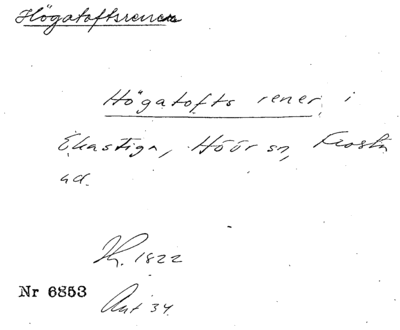 Högatoftsrenen
Högatofts rener i
Ekastiga, Höör sn, Frosta
hd.
Th. 1822
Nr 6853
Ant 34